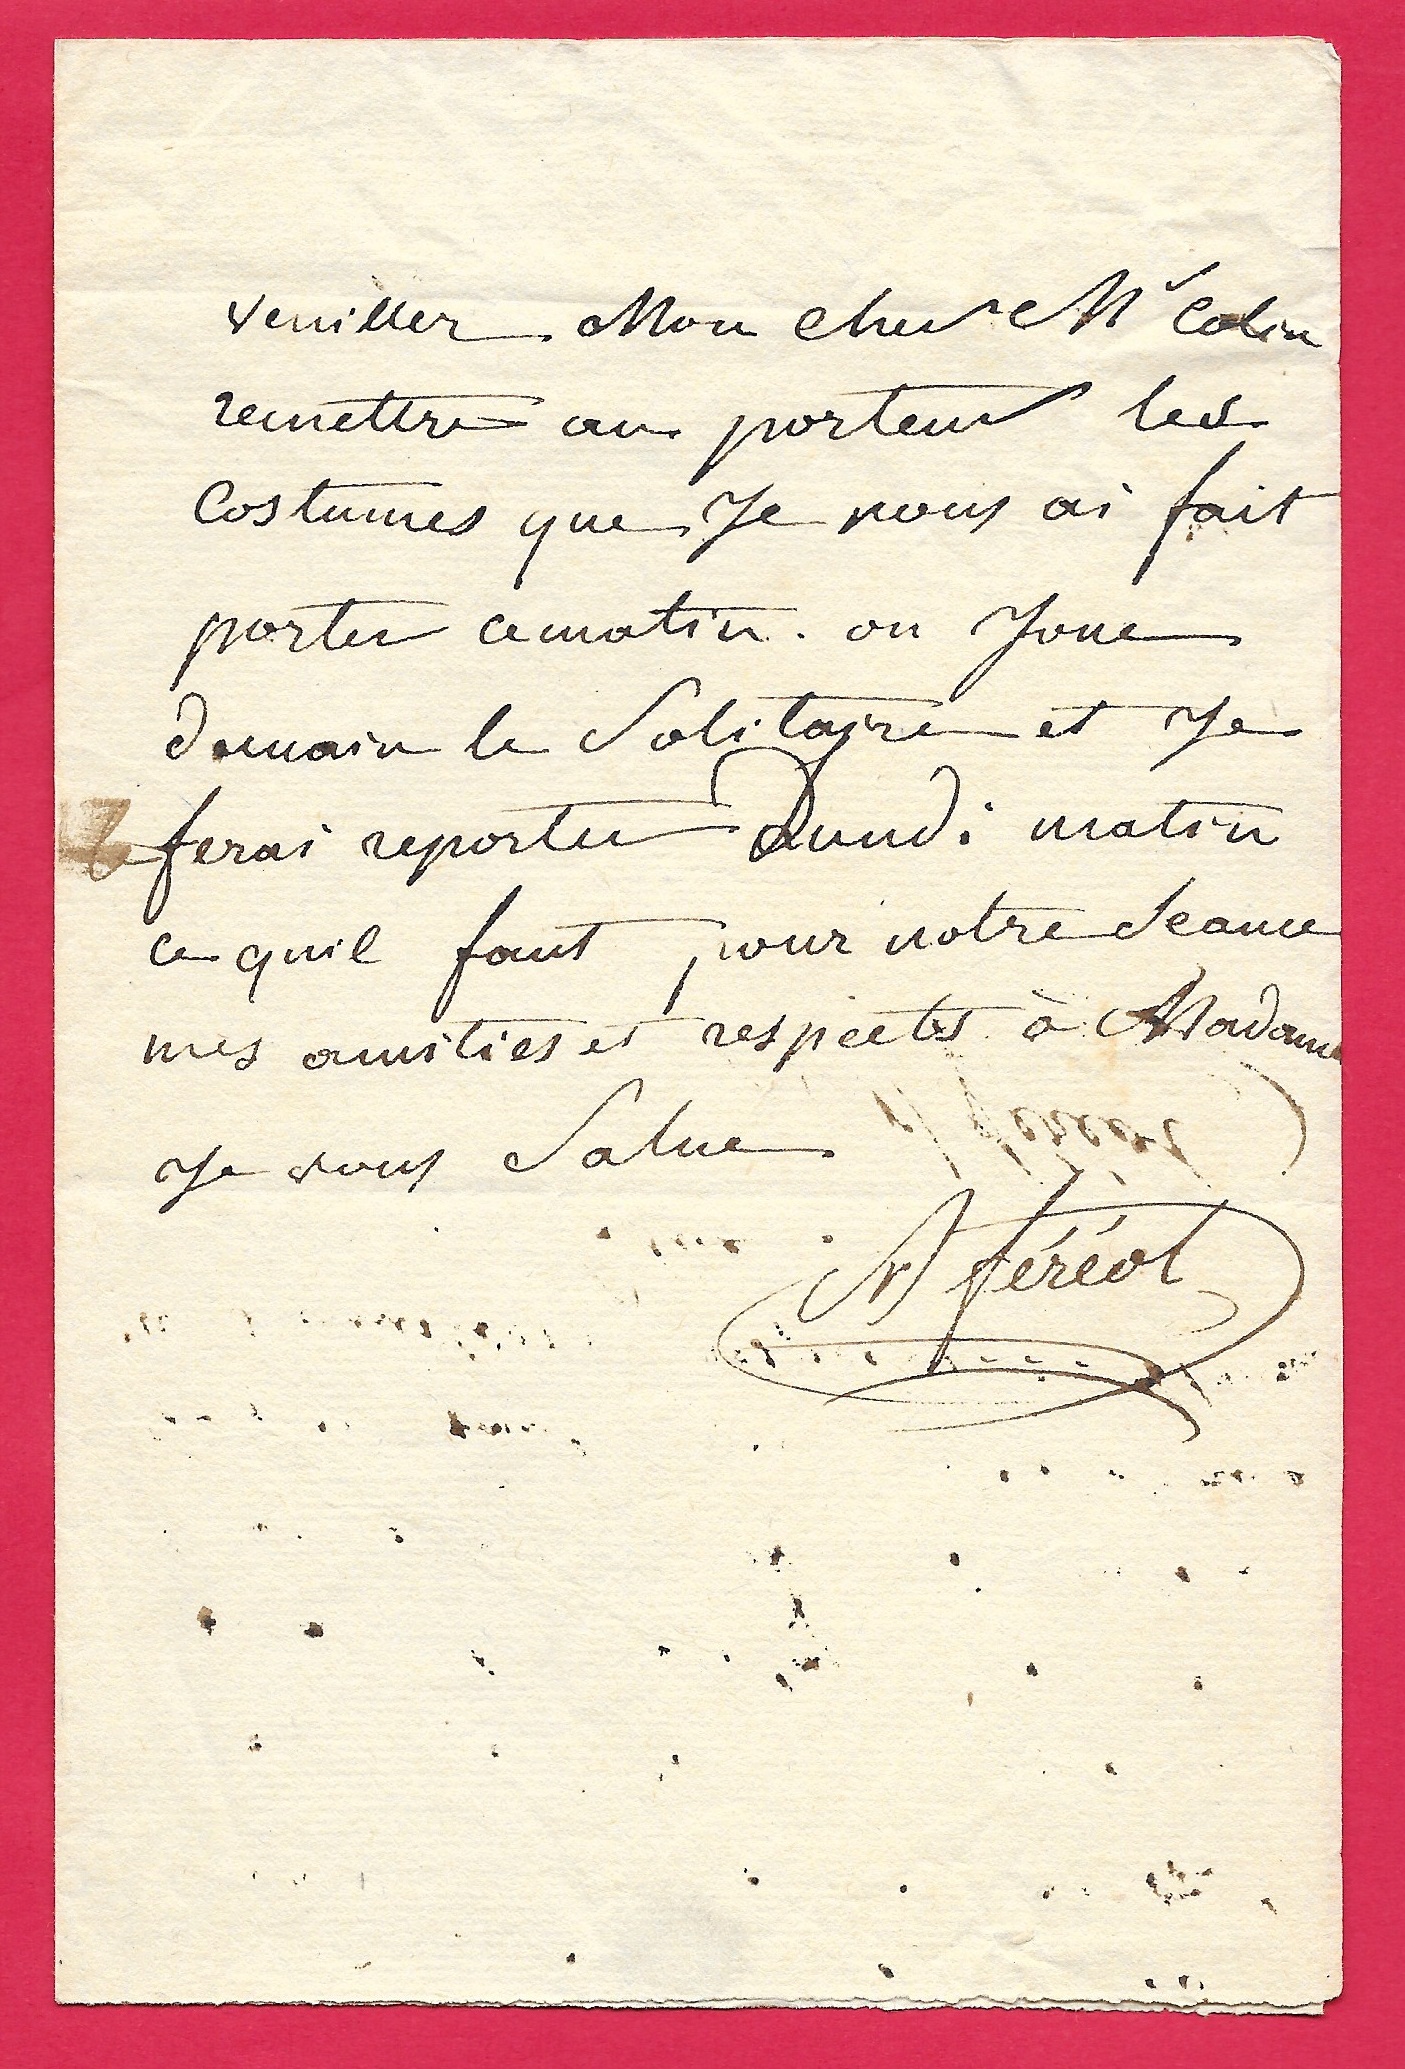 veuiller Mon cher Mr Colin
remettre au porteur les
Costumes que Je vous ai fait
porter ce matin. on Joue
demain le Solitaire et Je
ferai reporter Lundi matin
ce quil faut pour notre Seance
mes amitiés et respects à Madame
Je vous Salue
féréol